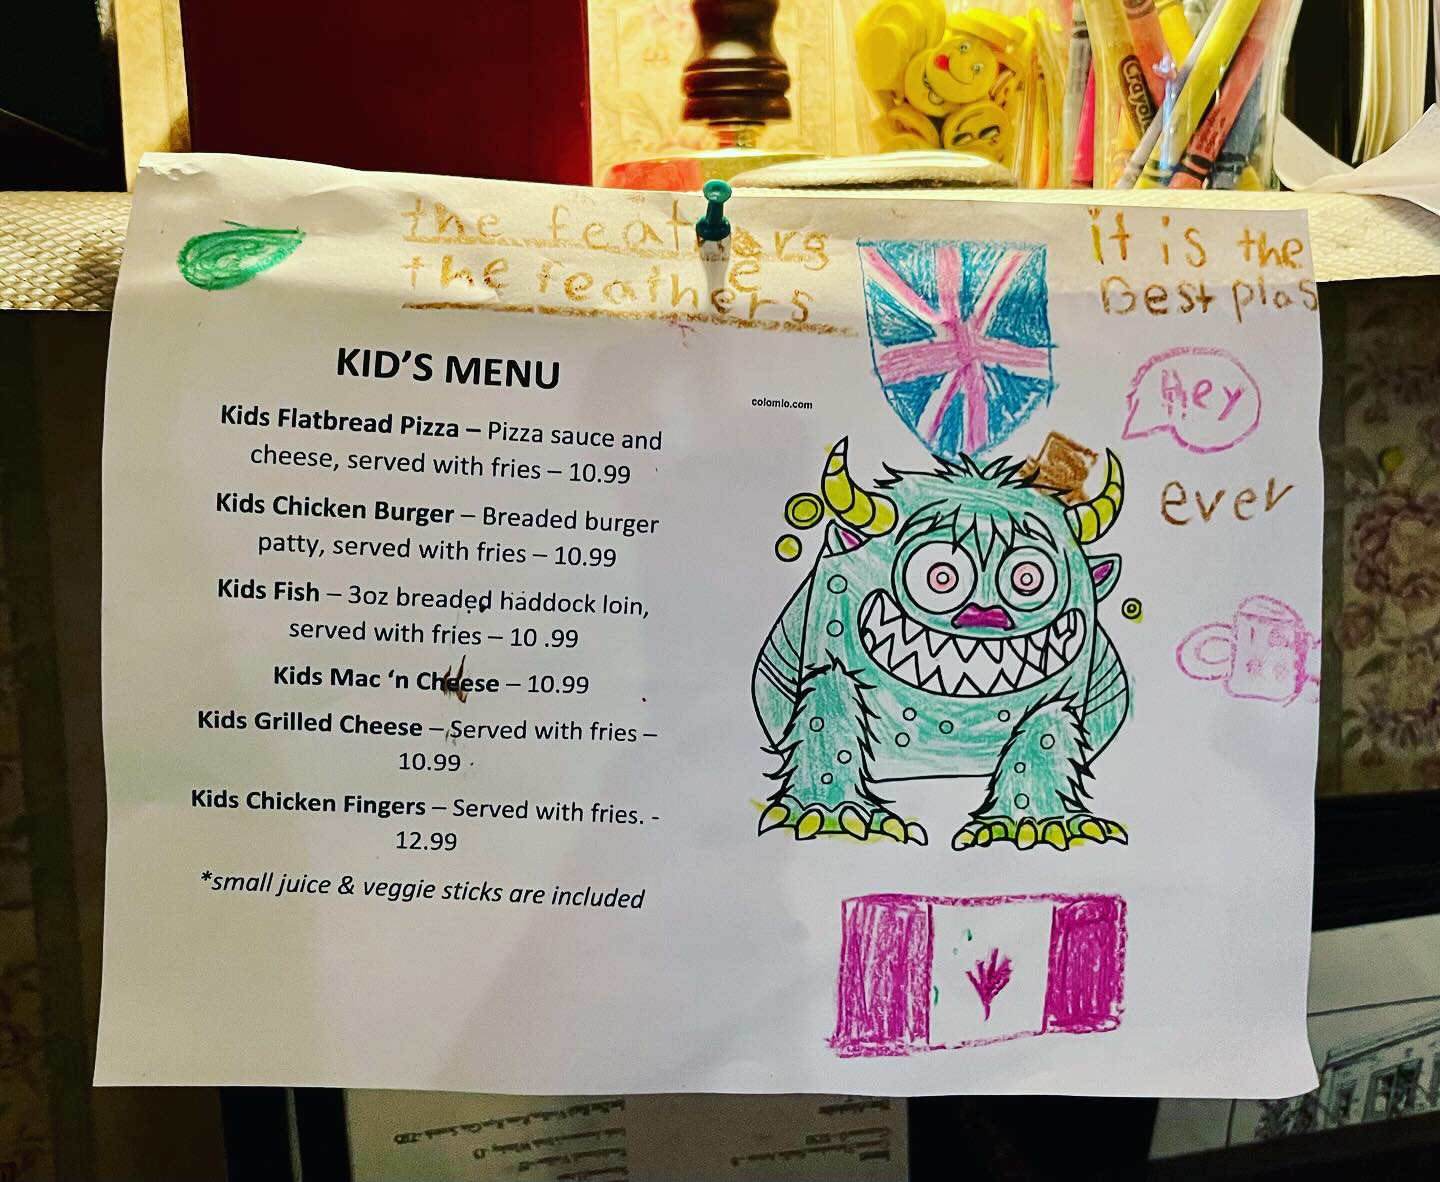 the feathers
the feathers
e
it is the
Best plas
Hey
ever
KID'S MENU
Kids Flatbread Pizza – Pizza sauce and
cheese, served with fries – 10.99
Kids Chicken Burger – Breaded burger
patty, served with fries – 10.99
Kids Fish – 3oz breaded haddock loin,
served with fries – 10 .99
Kids Mac ‘n Cheese – 10.99
Kids Grilled Cheese – Served with fries –
10.99
Kids Chicken Fingers – Served with fries. -
12.99
*small juice & veggie sticks are included
colomio.com
Crayola